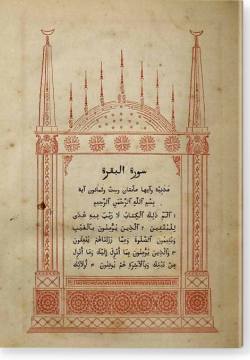 سورة البقرة
مدنية وآيها مائتان وست وثمانون آية
بسم الله الرحمن الرحيم
الم ذلك الكتاب لا ريب فيه هدى
للمتقين الذين يؤمنون بالغيب
ويقيمون الصلوة ومما رزقناهم ينفقون
والذين يؤمنون بما أنزل إليك وما أنزل
من قبلك وبالآخرة هم يوقنون أولائك